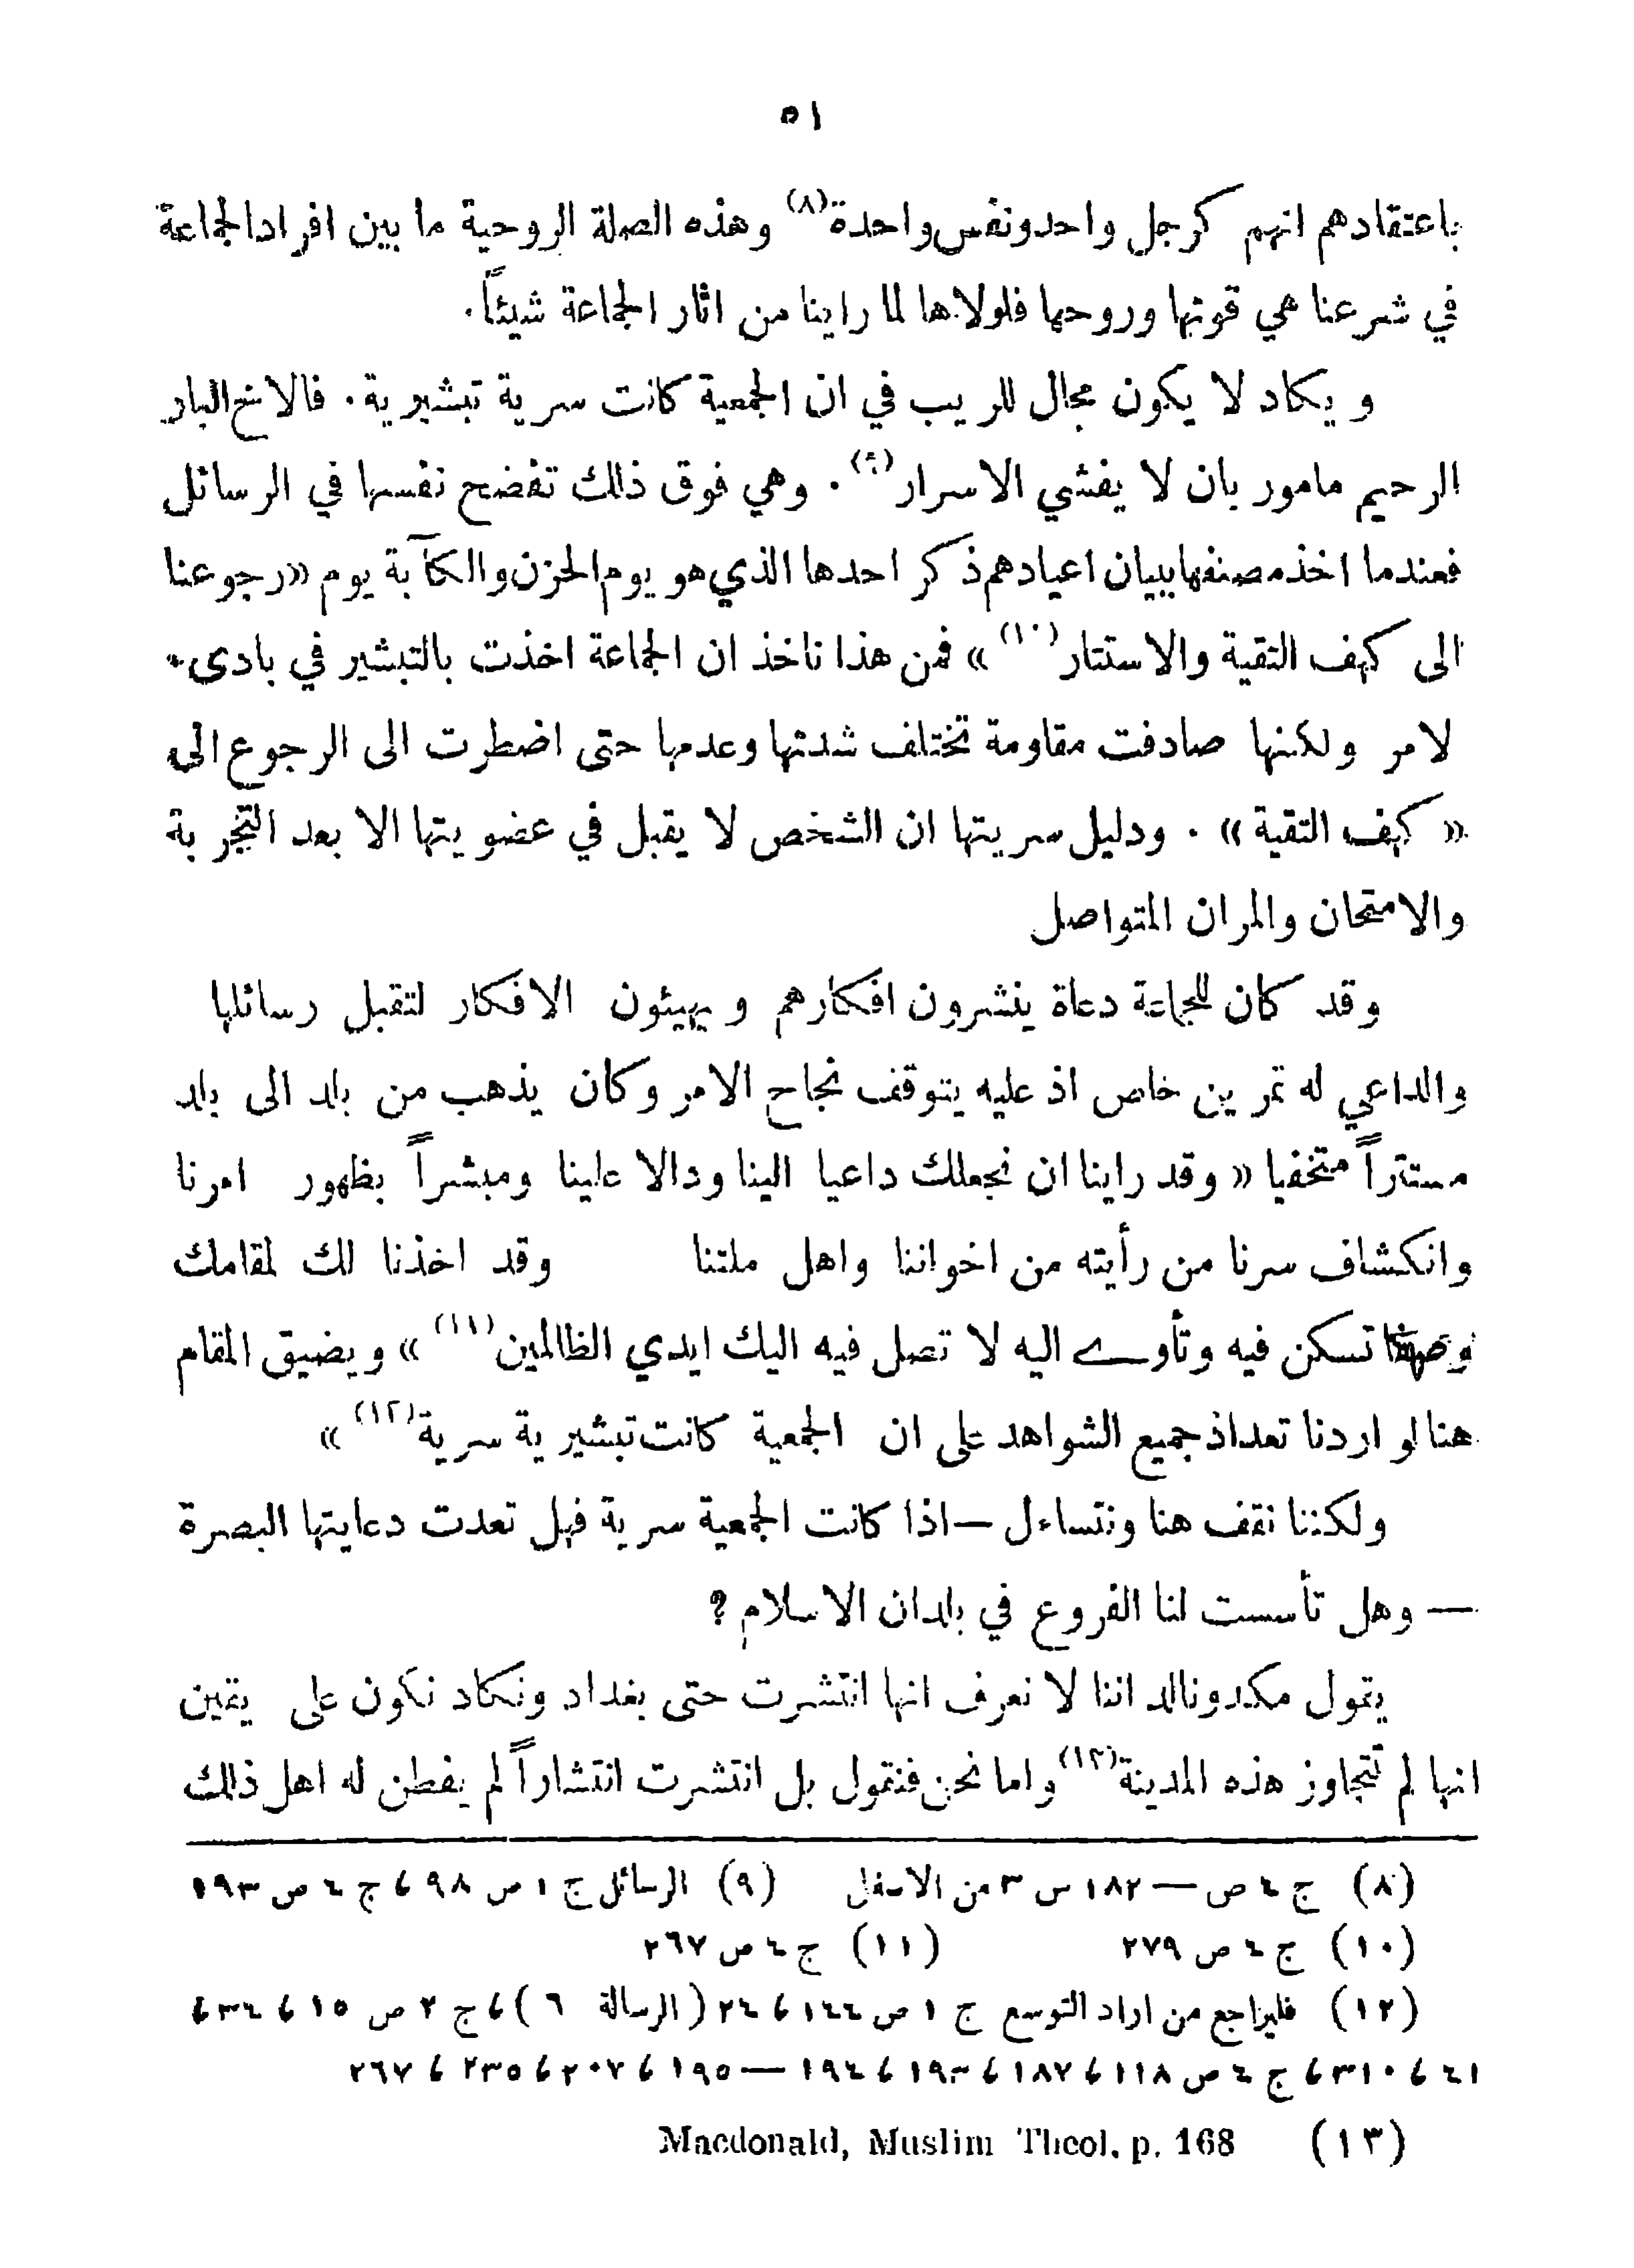 ٥١
باعتقادهم انهم كرجل واحدونفس واحدة(٨) وهذه الصلة الروحية ما بين افرادالجماعة
في شرعنا هي قوتها وروحها فلولاها لما راينا من اثار الجماعة شيئاً.
ويكاد لا يكون مجال للريب في ان الجمعية كانت سرية تبشيرية. فالاخ البار
الرحيم مامور بان لا يفشي الاسرار(٩). وهي فوق ذلك تفضح نفسها في الرسائل
فعندما اخذ مصنفها ببيان اعيادهم ذكر احدها الذي هو يوم الحزن والكآبة يوم «رجوعنا
الى كهف التقية والاستتار(١٠)» فمن هذا ناخذ ان الجماعة اخذت بالتبشير في بادىء
لامر ولكنها صادفت مقاومة تختلف شدتها وعدمها حتى اضطرت الى الرجوع الى
«كهف التقية». ودليل سريتها ان الشخص لا يقبل في عضويتها الا بعد التجربة
والامتحان والمران المتواصل
وقد كان للجماعة دعاة ينشرون افكارهم ويهيئون الافكار لتقبل رسائلها
والداعي له تمرين خاص اذ عليه يتوقف نجاح الامر وكان يذهب من بلد الى بلد
مستتراً متخفيا «وقد راينا ان نجعلك داعيا الينا ودالا علينا ومبشراً بظهور امرنا
وانكشاف سرنا من رأيته من اخواننا واهل ملتنا وقد اخذنا لك لمقامك
تسكن فيه وتأوي اليه لا تصل فيه اليك ايدي الظالمين(١١)» ويضيق المقام
هنا لو اردنا تعداذ جميع الشواهد على ان الجمعية كانت تبشيرية سرية(١٢)»
ولكننا نقف هنا ونتساءل — اذا كانت الجمعية سرية فهل تعدت دعايتها البصرة
— وهل تأسست لنا الفروع في بلدان الاسلام؟
يقول مكدونالد اننا لا نعرف انها انتشرت حتى بغداد ونكاد نكون على يقين
انها لم تتجاوز هذه المدينة(١٣) واما نحن فنقول بل انتشرت انتشاراً لم يفطن له اهل ذلك
(٨) ج ٤ ص — ١٨٢ س ٣ من الاسفل (٩) الرسائل ج ١ ص ٩٨ ، ج ٤ ص ١٩٣
(١٠) ج ٤ ص ٢٧٩ (١١) ج ٤ ص ٢٦٧
(١٢) فليراجع من اراد التوسع ج ١ ص ١٤٤ ، ٢٤ (الرسالة ٦) ، ج ٢ ص ١٥ ، ٣٤ ،
٤١ ، ٣١٠ ، ج ٤ ص ١١٨ ، ١٨٧ ، ١٩٣ ، ١٩٤ — ١٩٥ ، ٢٠٧ ، ٢٣٥ ، ٢٦٧
(١٣) Macdonald, Muslim Theol. p. 168